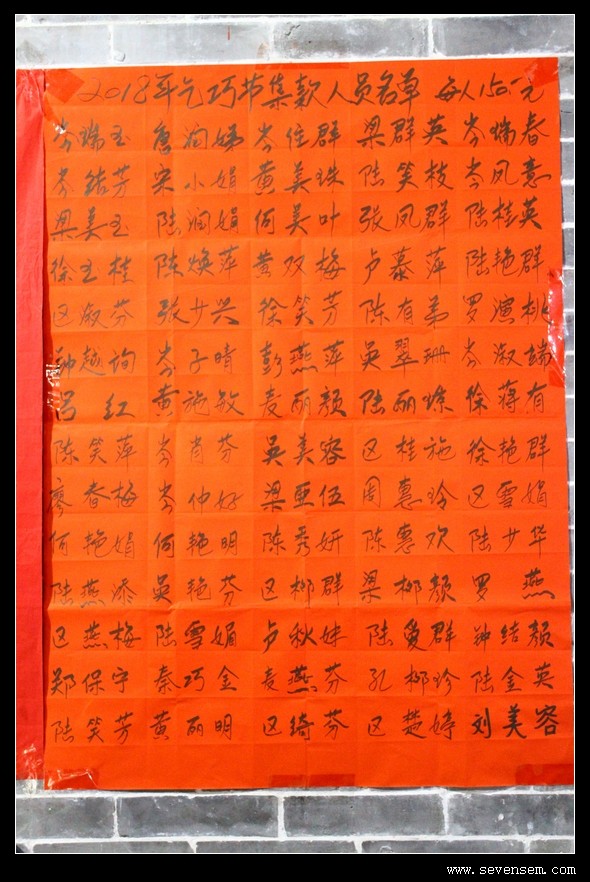 2018年乞巧节集款人员名单 每人150元
岑瑞玉 詹润娣 岑佳群 梁群英 岑瑞春
岑结芳 宋小娟 黄美珠 陆笑枝 岑凤意
梁美玉 陆润娟 何美叶 张凤群 陆桂英
徐玉桂 陈焕萍 黄双梅 卢慕萍 陆艳群
区淑芬 张少兴 徐笑芬 陈有弟 罗 桃
钟越询 岑子晴 彭燕萍 吴翠珊 岑淑端
吕红 黄施敏 麦丽颜 陆丽 徐蒋有
陈笑萍 岑肖芬 吴美容 区桂施 徐艳群
廖春梅 岑仲好 梁亚伍 周惠玲 区雪娟
何艳娟 何艳明 陈秀妍 陈惠欢 陆少华
陆燕添 吴艳芬 区柳群 梁柳颜 罗燕
区燕梅 陆雪媚 卢秋妹 陆爱群 钟结颜
郑保宁 秦巧金 麦燕芬 孔柳珍 陆金英
陆笑芳 黄丽明 区绮芬 区楚婷 刘美容
www.sevensem.com